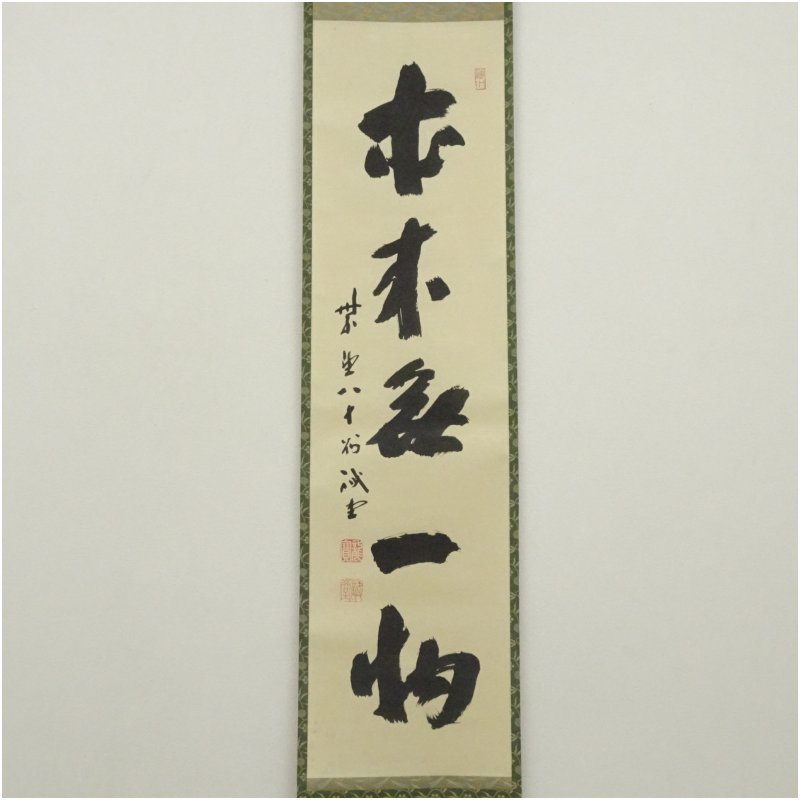 本来無一物
紫野 八十翁 誡堂